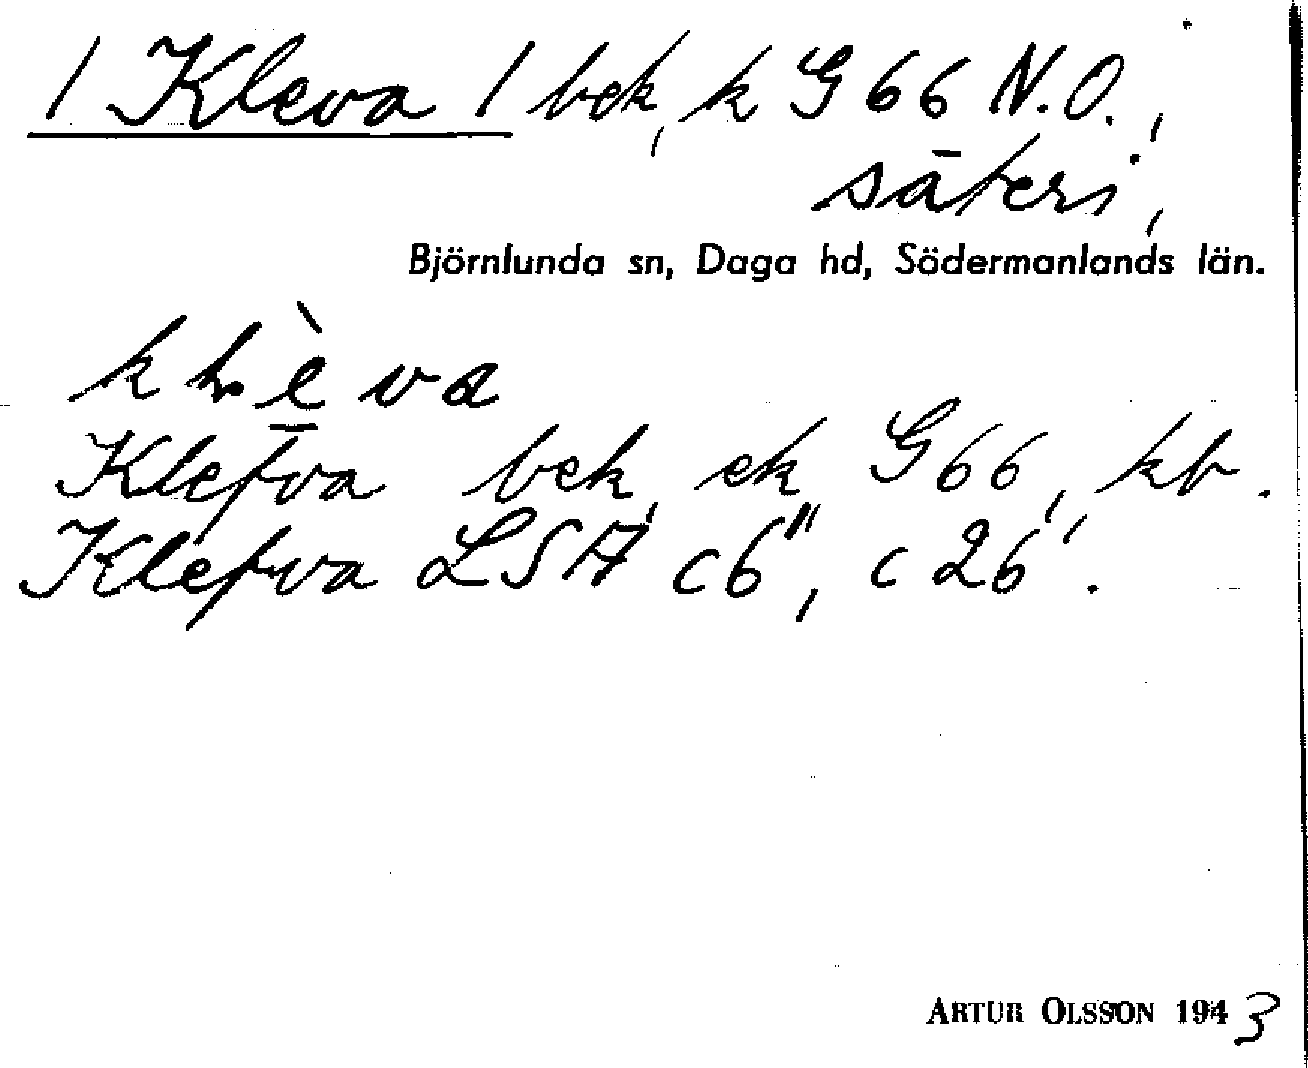 / Kleva / bek, k G 66 N.O.,
säteri,
Björnlunda sn, Daga hd, Södermanlands län.
Klefva bek, ek G 66, kb.
Klefva LSA c6", c26'.
ARTUR OLSSON 1943